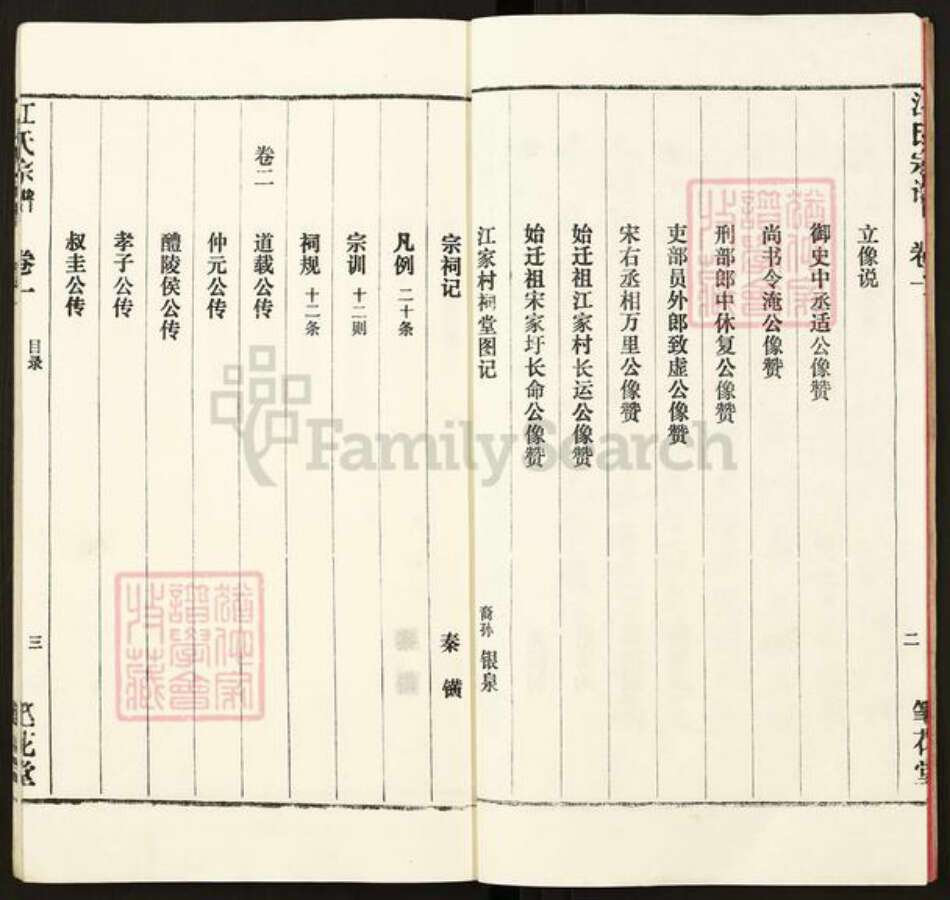 江氏宗谱 卷一 二 笔花堂
立像说
御史中丞适公像赞
尚书令淹公像赞
刑部郎中休复公像赞
吏部员外郎致虚公像赞
宋右丞相万里公像赞
始迁祖江家村长运公像赞
始迁祖宋家圩长命公像赞
江家村祠堂图记 裔孙 银泉
宗祠记 秦 𬭬
凡例 二十条
宗训 十二则
祠规 十二条
卷二 道载公传
仲元公传
醴陵侯公传
孝子公传
叔圭公传
江氏宗谱 卷一 目录 三 笔花堂
FamilySearch